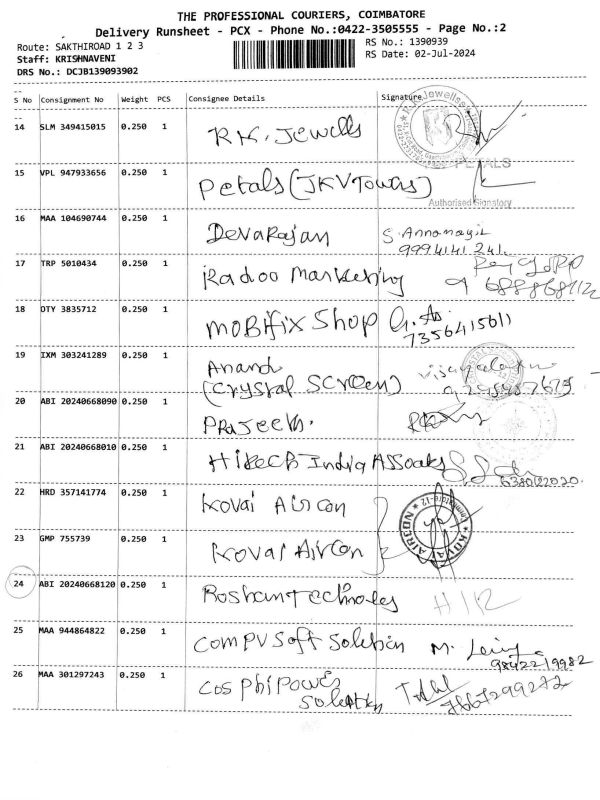 THE PROFESSIONAL COURIERS, COIMBATORE
Delivery Runsheet - PCX - Phone No.:0422-3505555 - Page No.:2
Route: SAKTHIROAD 1 2 3
RS No.: 1390939
Staff: KRISHNAVENI
RS Date: 02-Jul-2024
DRS No.: DCJB139093902
S No Consignment No Weight PCS Consignee Details Signature
14 SLM 349415015 0.250 1 R.K. Jewells
15 VPL 947933656 0.250 1 Petals (JKV Towers)
PETALS
Authorised Signatory
16 MAA 104690744 0.250 1 Devarajan
9994141 241.
17 TRP 5010434 0.250 1 Radoo Marketing
18 OTY 3835712 0.250 1 Mobifix Shop
7356415611
19 IXM 303241289 0.250 1 Anand
(Crystal Screen)
20 ABI 20240668090 0.250 1 Prajeeth.
21 ABI 20240668010 0.250 1 Hitech India
22 HRD 357141774 0.250 1 Kovai Aircon
23 GMP 755739 0.250 1 Kovai Aircon
KOVAI AIRCON
24 ABI 20240668120 0.250 1
25 MAA 944864822 0.250 1 Compv Soft Solution
9842219982
26 MAA 301297243 0.250 1 Cos Phi Power
Solution
7667299272